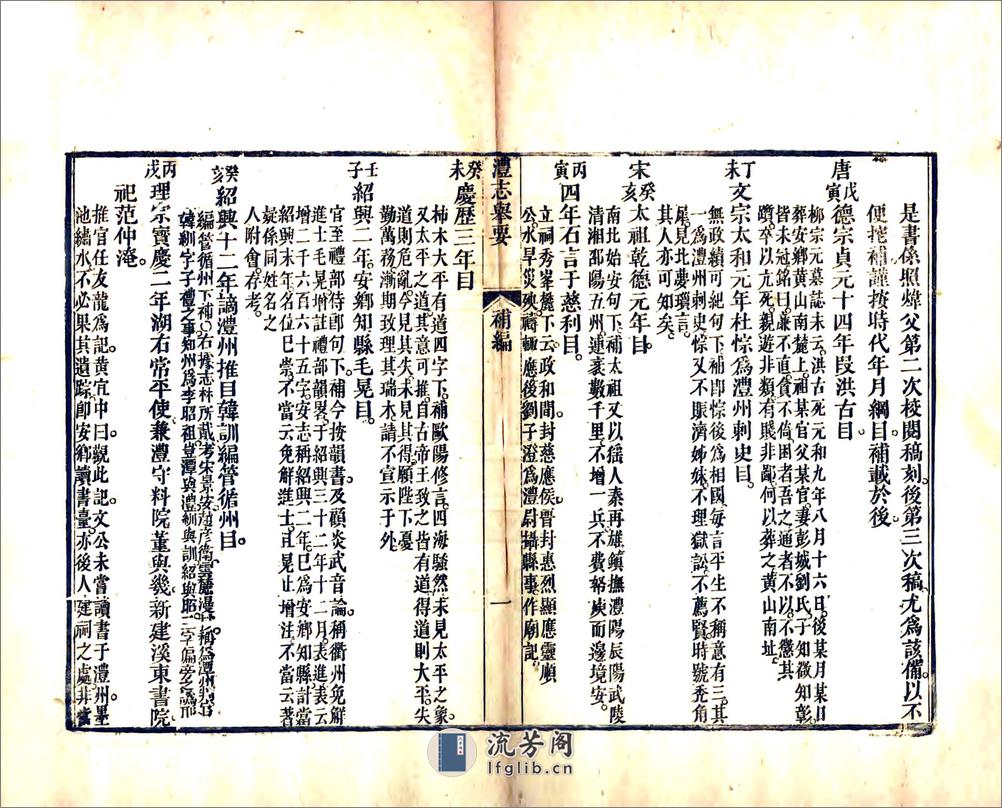 是書係照煒父第二次校閱稿刻後第三次稿尤爲該備以不
便挖補謹按時代年月綱目補載於後
唐戊寅德宗貞元十四年段洪古目
柳宗元墓誌末云洪古死元和九年八月十六日後某月某日
葬安鄉黃山南麓上祖某官父某官妻彭城劉氏子知微知彰
皆未冠銘曰廉不直貪不倚困者吾之通者不以不懲其
躓卒以亢死親遊非類有賤非鄙何以葬之黃山南址
丁未文宗太和元年杜悰爲澧州刺史目
無政績可紀句下補即悰後爲相國每言平生不稱意有三其
一爲澧州刺史悰又不賑濟姊妹不理獄訟不薦賢時號禿角
犀見北夢瑣言
其人亦可知矣
宋癸亥太祖乾德元年目
南北始安句下補太祖又以猺人秦再雄鎮撫澧陽辰陽武陵
清湘邵陽五州連袤數千里不增一兵不費帑庾而邊境安
丙寅四年石言于慈利目
立祠秀峯麓下云政和間封慈應侯晋封惠烈顯應靈順
公水旱災殃禱輒應後劉子澄爲澧尉攝縣事作廟記
澧志舉要
補編
一
癸未慶歷三年目
柿木大平有道四字下補歐陽修言四海騷然未見太平之象
又太平之道其意可推自古帝王致之皆有道得道則大平失
道則厄亂今見其失未見其得願陛下憂
勤萬務漸期致理其瑞木請不宣示于外
壬子紹興二年安鄉知縣毛晃目
官至禮部待郎句下補今按韻書及顧炎武音論稱衢州免解
進士毛晃增註禮部韻畧于紹興三十二年十二月表進表云
增二千六百六十五字安志稱紹興二年巳爲安鄉知縣計當
紹興末年名位巳崇不當云免解進士且晃止增注不當云著
疑係同姓名之
人附會存考
癸亥紹興十二年謫澧州推目韓訓編管循州目
編管循州下補右據志林所載考宋景安趙彦衛雲麓漫
韓紃字子禮之事知州爲李昭祖豈潭與澧紃與訓紹與昭
丙戌理宗寶慶二年湖右常平使兼澧守料院董與幾新建溪東書院
祀范仲淹
推官任友龍爲記黃宜中曰觀此記文公未嘗讀書于澧州墨
池繡水不必果其遺踪即安鄉讀書臺亦後人建祠之處非
流芳阁
lfglib.cn